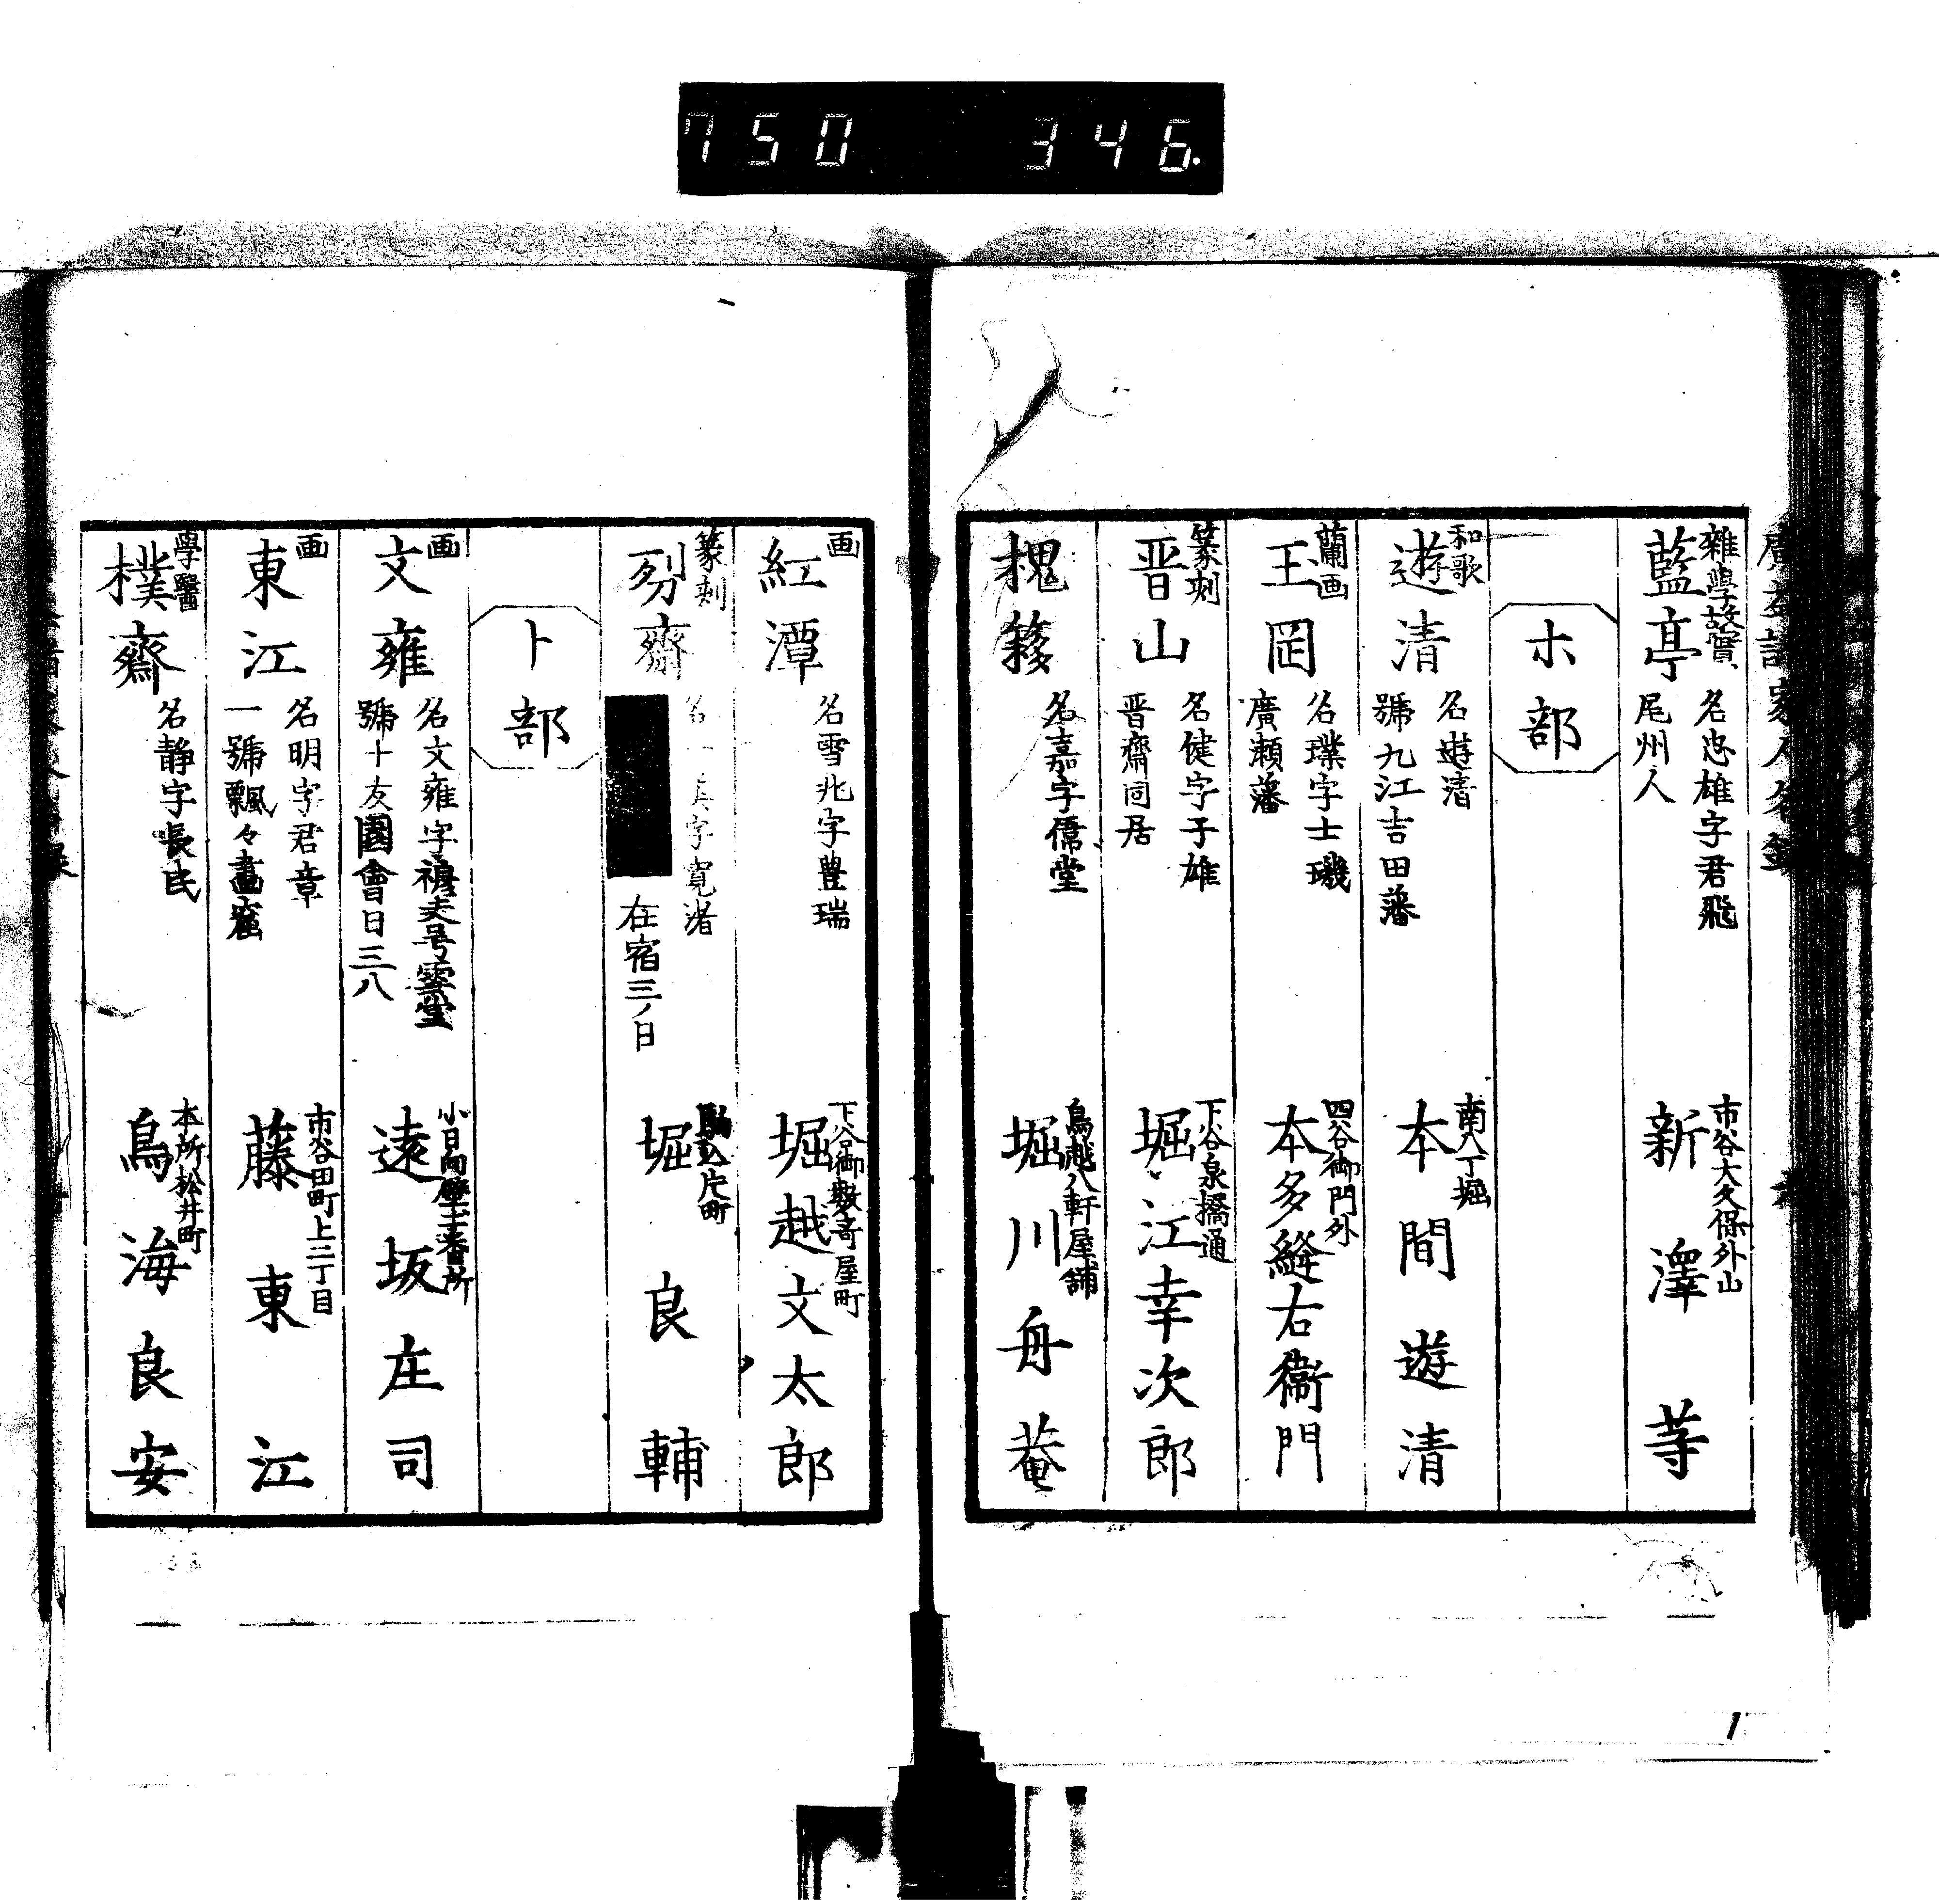 750 346.
雜學故實
藍亭
名忠雄字君飛
尾州人
市谷大久保外山
新澤䓁
ホ部
和歌
遊清
名遊清
號九江吉田藩
南八丁堀
本間遊清
蘭画
王岡
名璞字士璣
廣瀬藩
四谷御門外
本多縫右衞門
篆刻
晋山
名健字子雄
晋齋同居
下谷泉橋通
堀江幸次郎
槐
名嘉字儒堂
鳥越八軒屋舗
堀川舟菴
画
紅潭
名雪兆字豊瑞
下谷御數寄屋町
堀越文太郎
篆刻
齋
在宿三ノ日
駒込片町
堀良輔
ト部
画
文雍
名文雍字
號十友園會日三八
遠坂庄司
画
東江
名明字君章
一號飄々畫窟
市谷田町上二丁目
藤東江
學醫
樸齋
名静字長民
本所松井町
鳥海良安